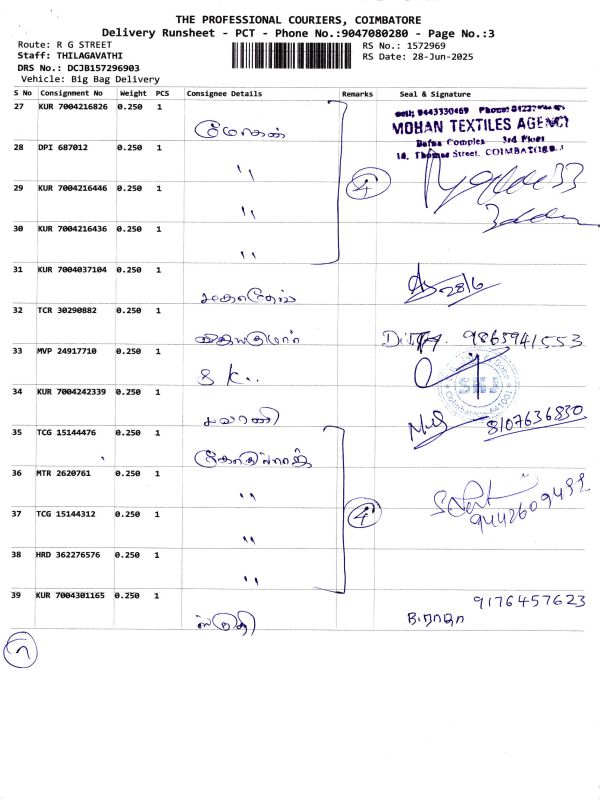 THE PROFESSIONAL COURIERS, COIMBATORE
Delivery Runsheet - PCT - Phone No.:9047080280 - Page No.:3
Route: R G STREET
RS No.: 1572969
Staff: THILAGAVATHI
RS Date: 28-Jun-2025
DRS No.: DCJB157296903
Vehicle: Big Bag Delivery
S No Consignment No Weight PCS Consignee Details Remarks Seal & Signature
27 KUR 7004216826 0.250 1
MOHAN TEXTILES AGENCY
3rd Floor
Thomas Street, COIMBATORE
28 DPI 687012 0.250 1
"
4
29 KUR 7004216446 0.250 1
"
30 KUR 7004216436 0.250 1
"
31 KUR 7004037104 0.250 1
28/6
32 TCR 30290882 0.250 1
9865941553
33 MVP 24917710 0.250 1
S K..
34 KUR 7004242339 0.250 1
8107636830
35 TCG 15144476 0.250 1
36 MTR 2620761 0.250 1
"
37 TCG 15144312 0.250 1
"
4
38 HRD 362276576 0.250 1
"
39 KUR 7004301165 0.250 1
9176457623
B.ராஜா